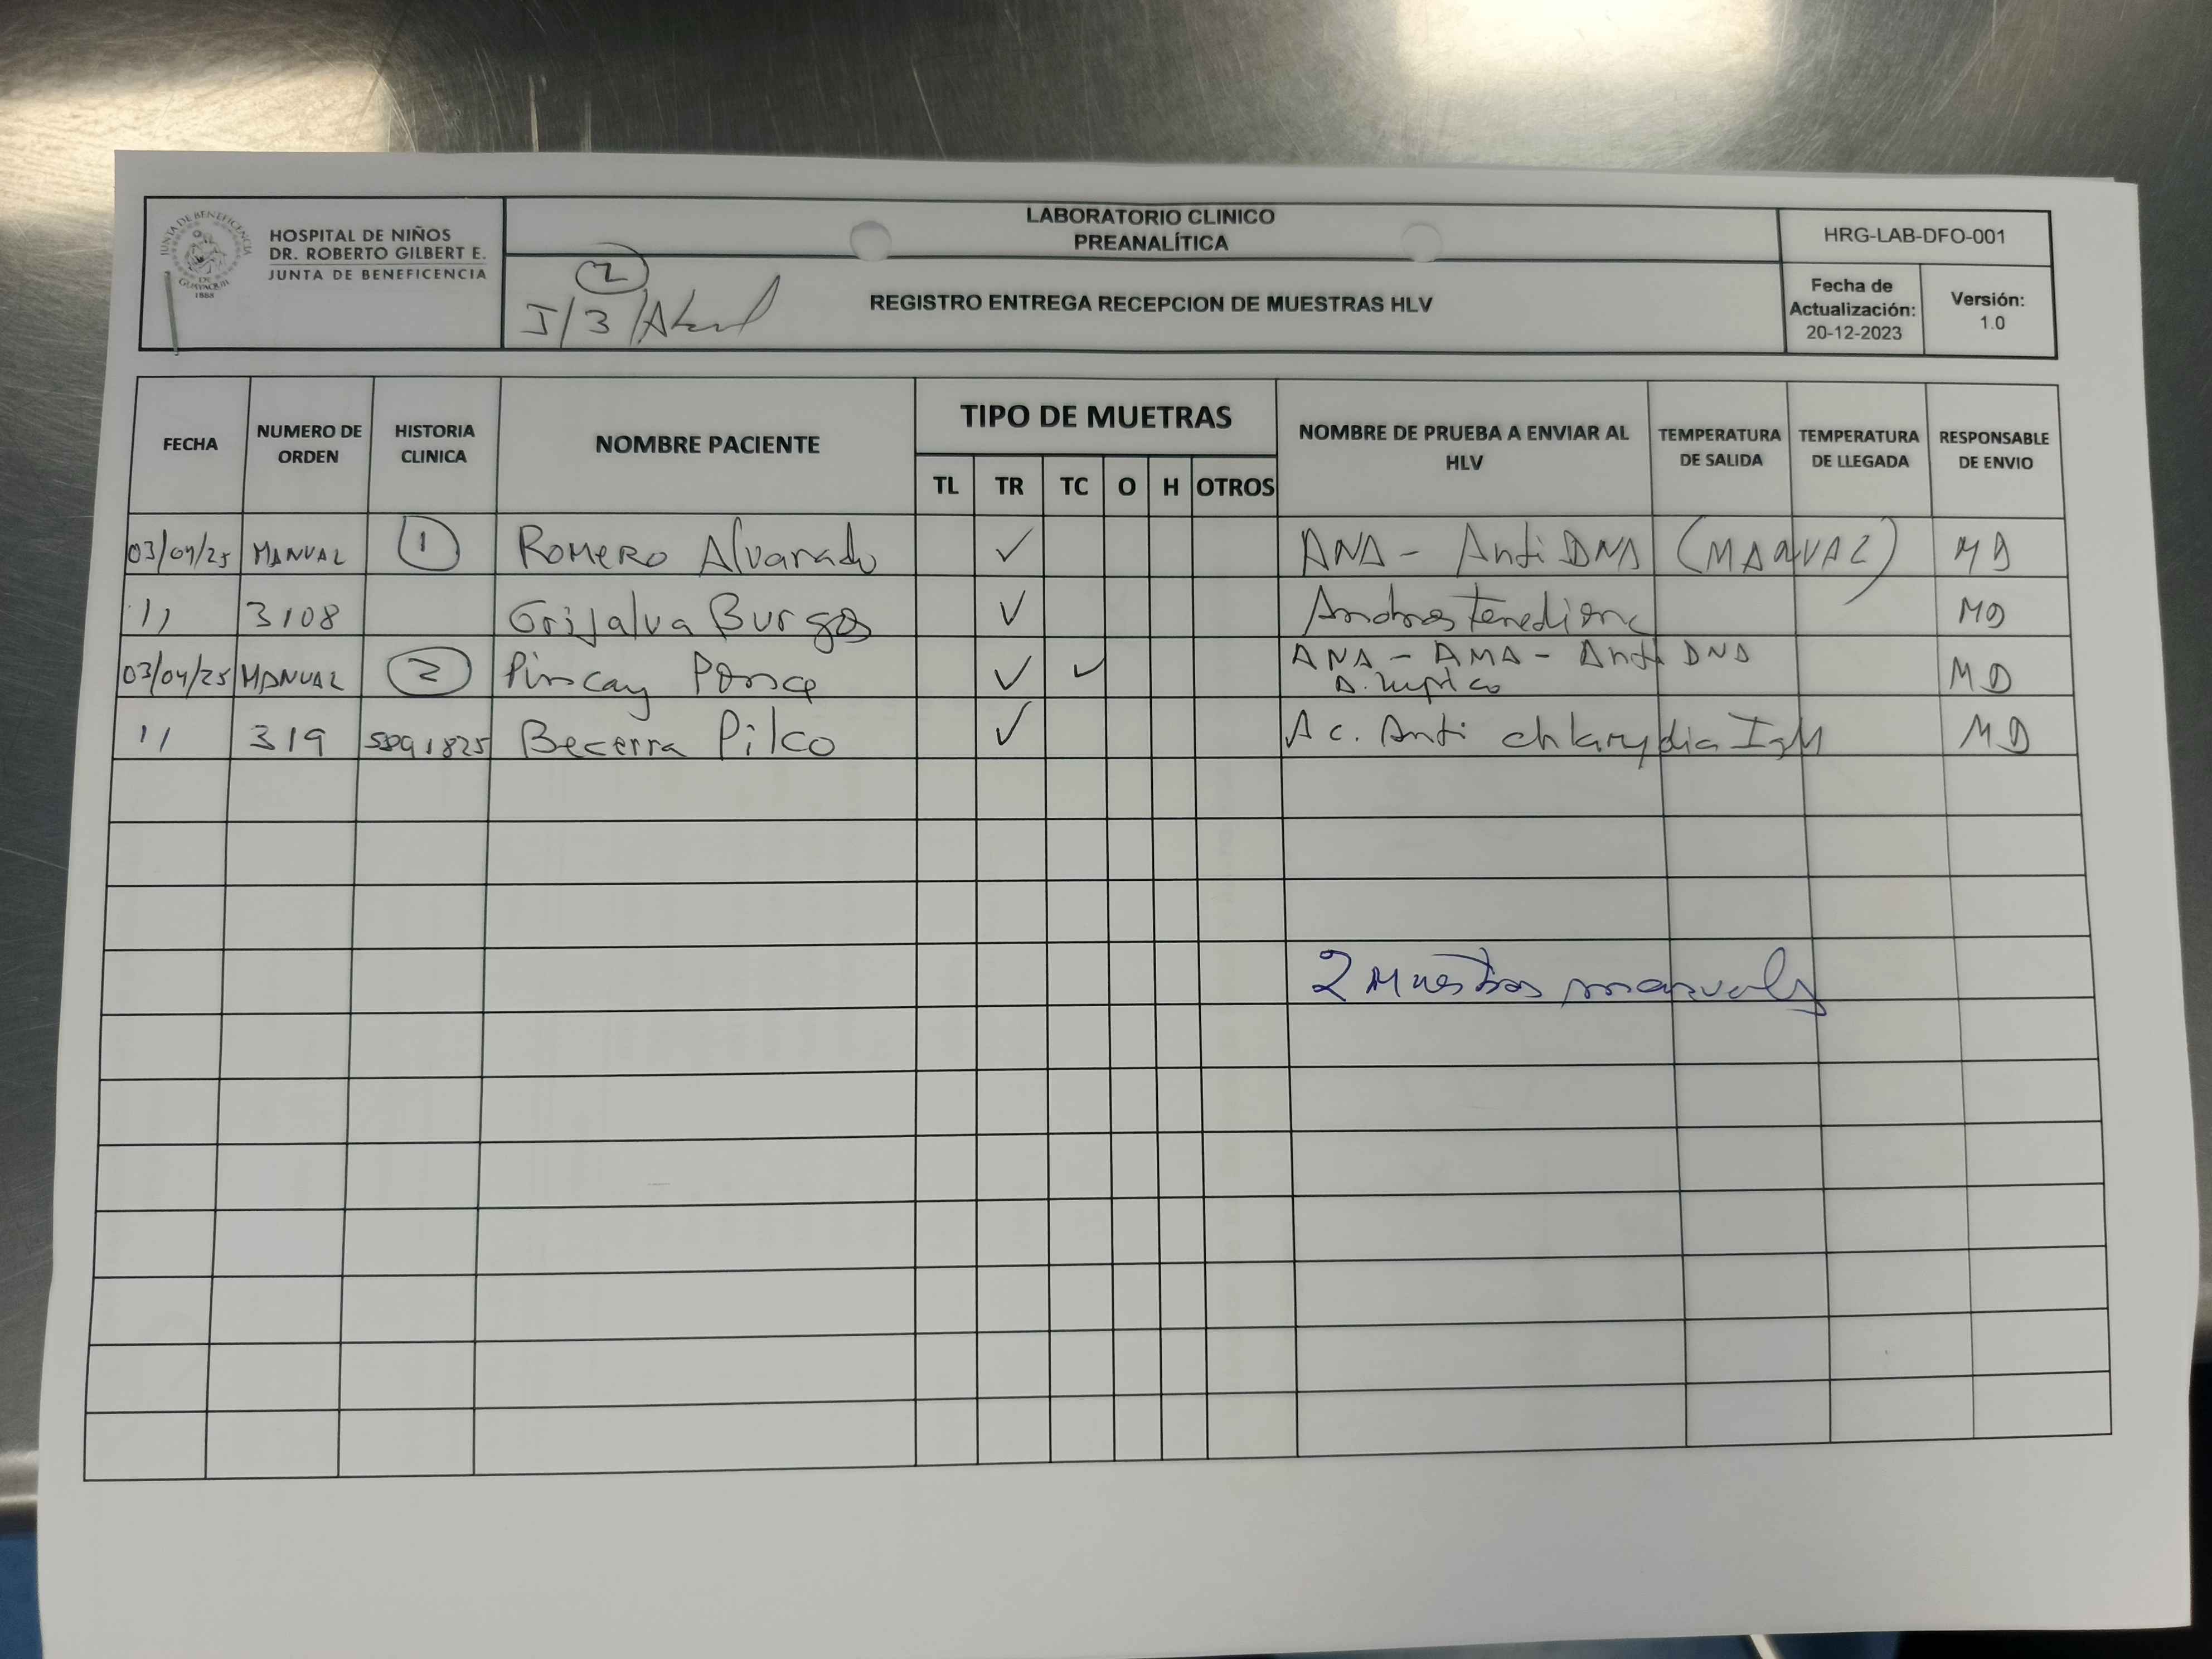 JUNTA DE BENEFICENCIA
DE GUAYAQUIL
1888
HOSPITAL DE NIÑOS
DR. ROBERTO GILBERT E.
JUNTA DE BENEFICENCIA
LABORATORIO CLINICO
PREANALÍTICA
HRG-LAB-DFO-001
2
J/3/Abril
REGISTRO ENTREGA RECEPCION DE MUESTRAS HLV
Fecha de
Actualización:
20-12-2023
Versión:
1.0
FECHA
NUMERO DE
ORDEN
HISTORIA
CLINICA
NOMBRE PACIENTE
TIPO DE MUETRAS
TL TR TC O H OTROS
NOMBRE DE PRUEBA A ENVIAR AL
HLV
TEMPERATURA
DE SALIDA
TEMPERATURA
DE LLEGADA
RESPONSABLE
DE ENVIO
03/04/25 MANUAL 1 Romero Alvarado ✓ ANA - Anti DNA (MANUAL) MD
11 3108 Grijalva Burgos ✓ Androstenediona MD
03/04/25 MANUAL 2 Pincay Ponce ✓ ✓ ANA - AMA - Anti DNA
A. Lupico MD
11 319 Becerra Pilco ✓ Ac. Anti chlamydia IgM MD
2 Muestras manuals